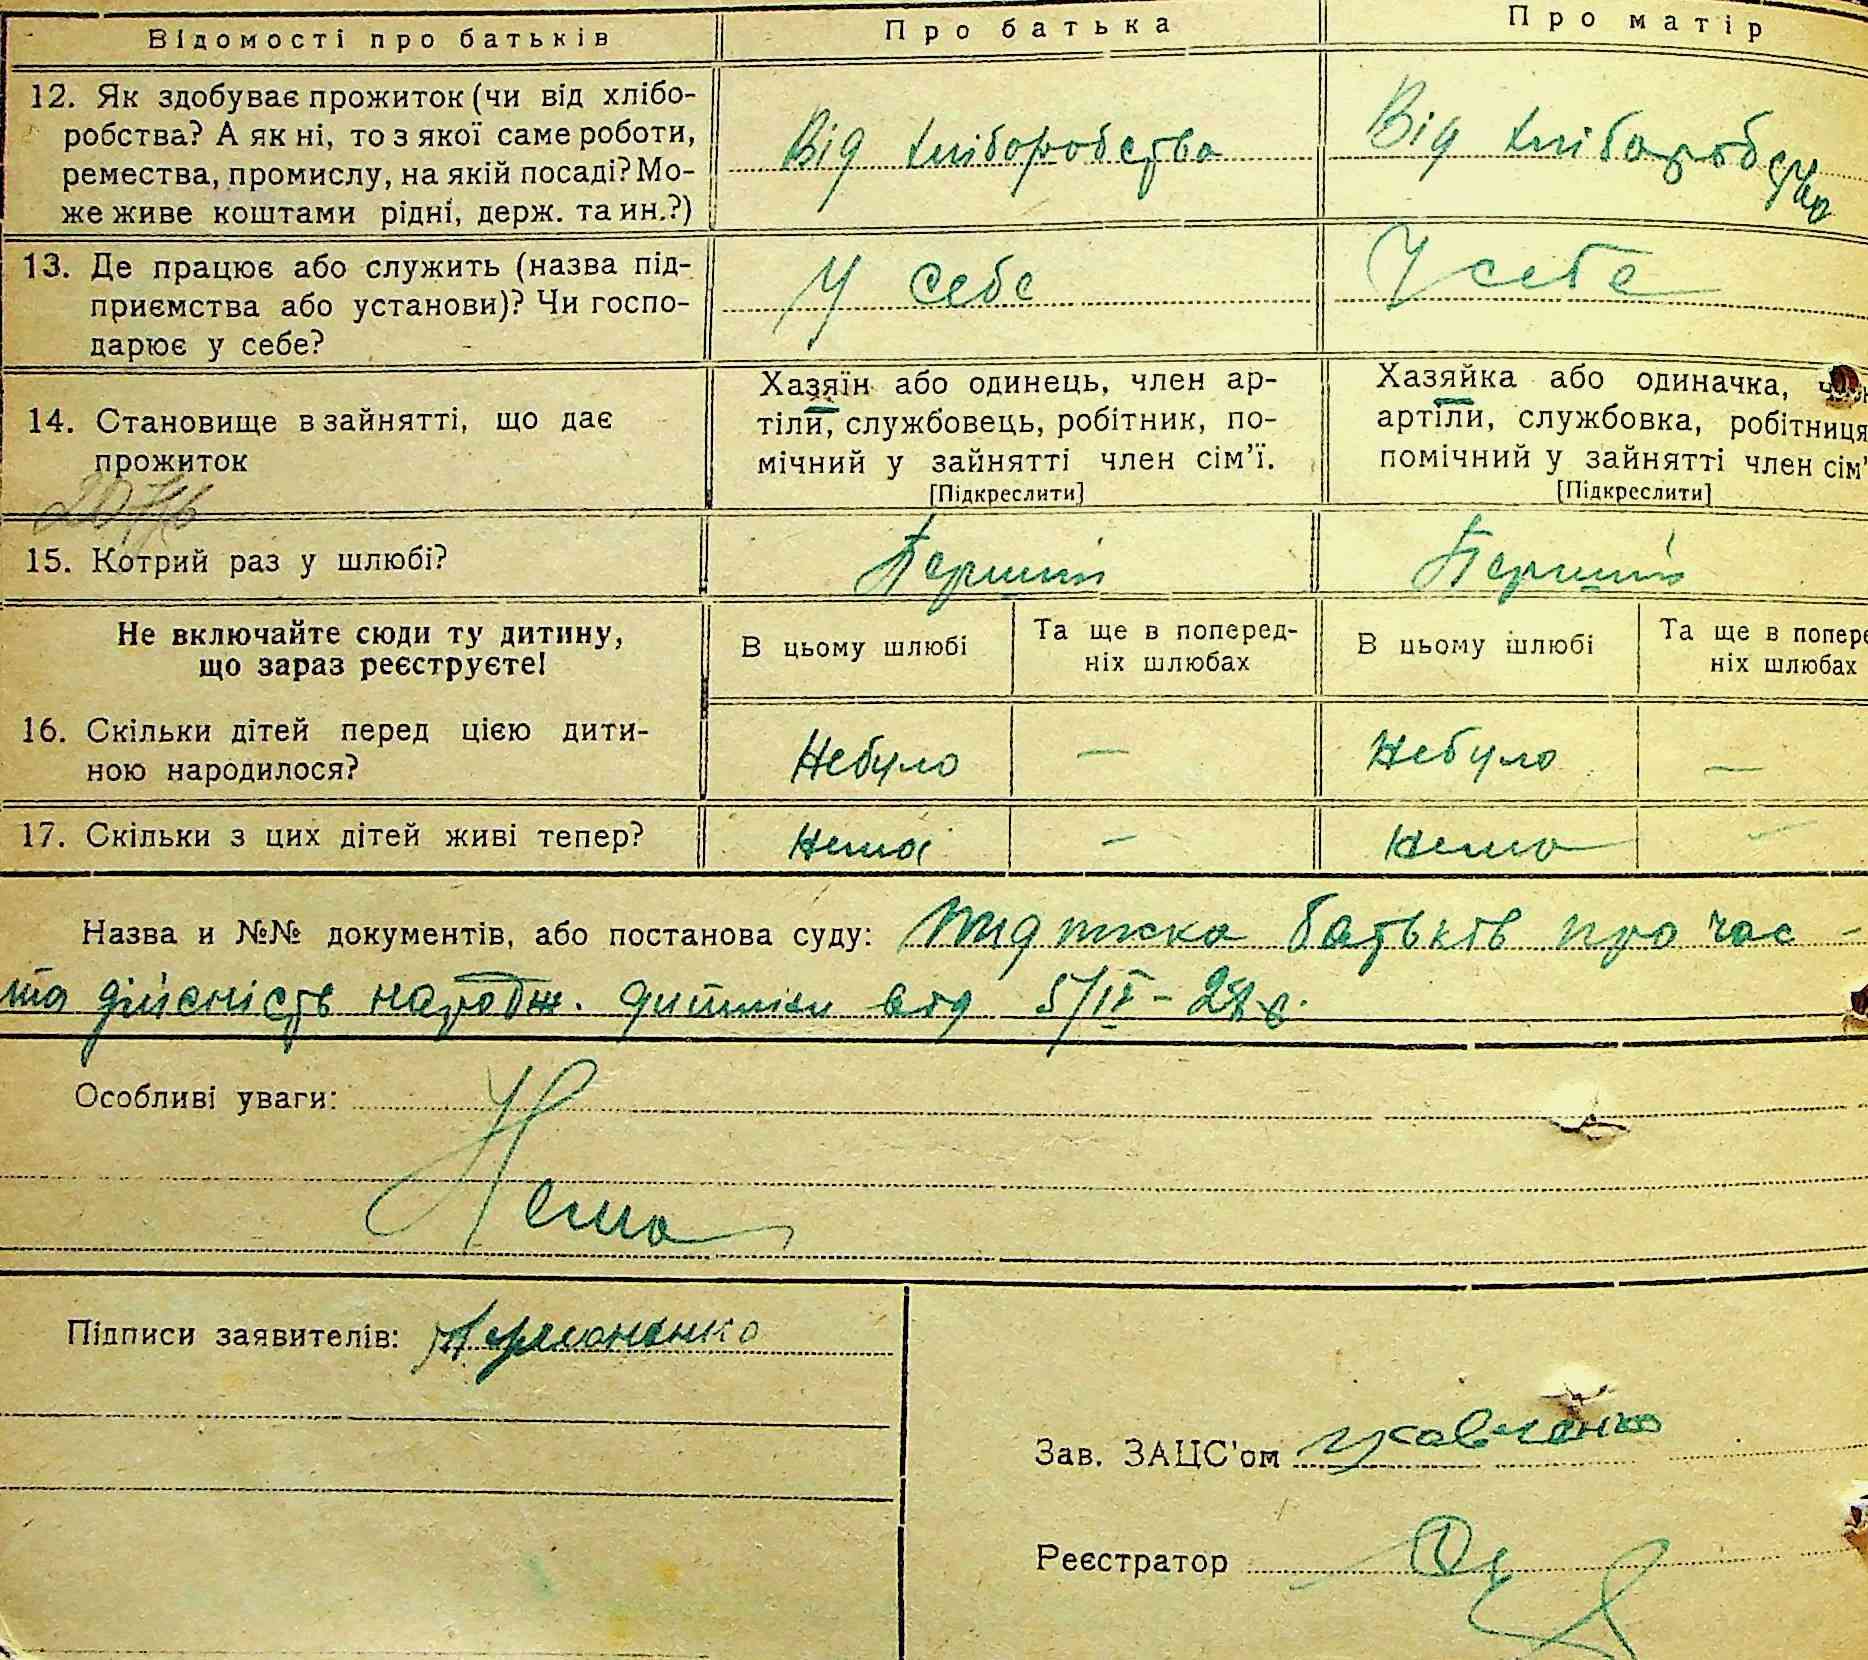 Відомості про батьків
Про батька
Про матір
12. Як здобуває прожиток (чи від хлібо-
робства? А як ні, то з якої саме роботи,
ремества, промислу, на якій посаді? Мо-
же живе коштами рідні, держ. та ин.?)
Від хліборобства
Від хліборобства
13. Де працює або служить (назва під-
приємства або установи)? Чи госпо-
дарює у себе?
У себе
У себе
14. Становище в зайнятті, що дає
прожиток
Хазяїн або одинець, член ар-
тіли, службовець, робітник, по-
мічний у зайнятті член сім'ї.
[Підкреслити]
Хазяйка або одиначка,
артіли, службовка, робітниця
помічний у зайнятті член сім'
[Підкреслити]
15. Котрий раз у шлюбі?
Перший
Перший
Не включайте сюди ту дитину,
що зараз реєструєте!
В цьому шлюбі
Та ще в поперед-
ніх шлюбах
В цьому шлюбі
Та ще в попере
ніх шлюбах
16. Скільки дітей перед цією дити-
ною народилося?
Небуло
—
Небуло
—
17. Скільки з цих дітей живі тепер?
Нема
—
Нема
—
Назва и №№ документів, або постанова суду: підписка батьків про час -
та дійсність народж. дитини від 5/IX - 28 р.
Особливі уваги:
Нема
Підписи заявителів:
Зав. ЗАЦС'ом
Реєстратор